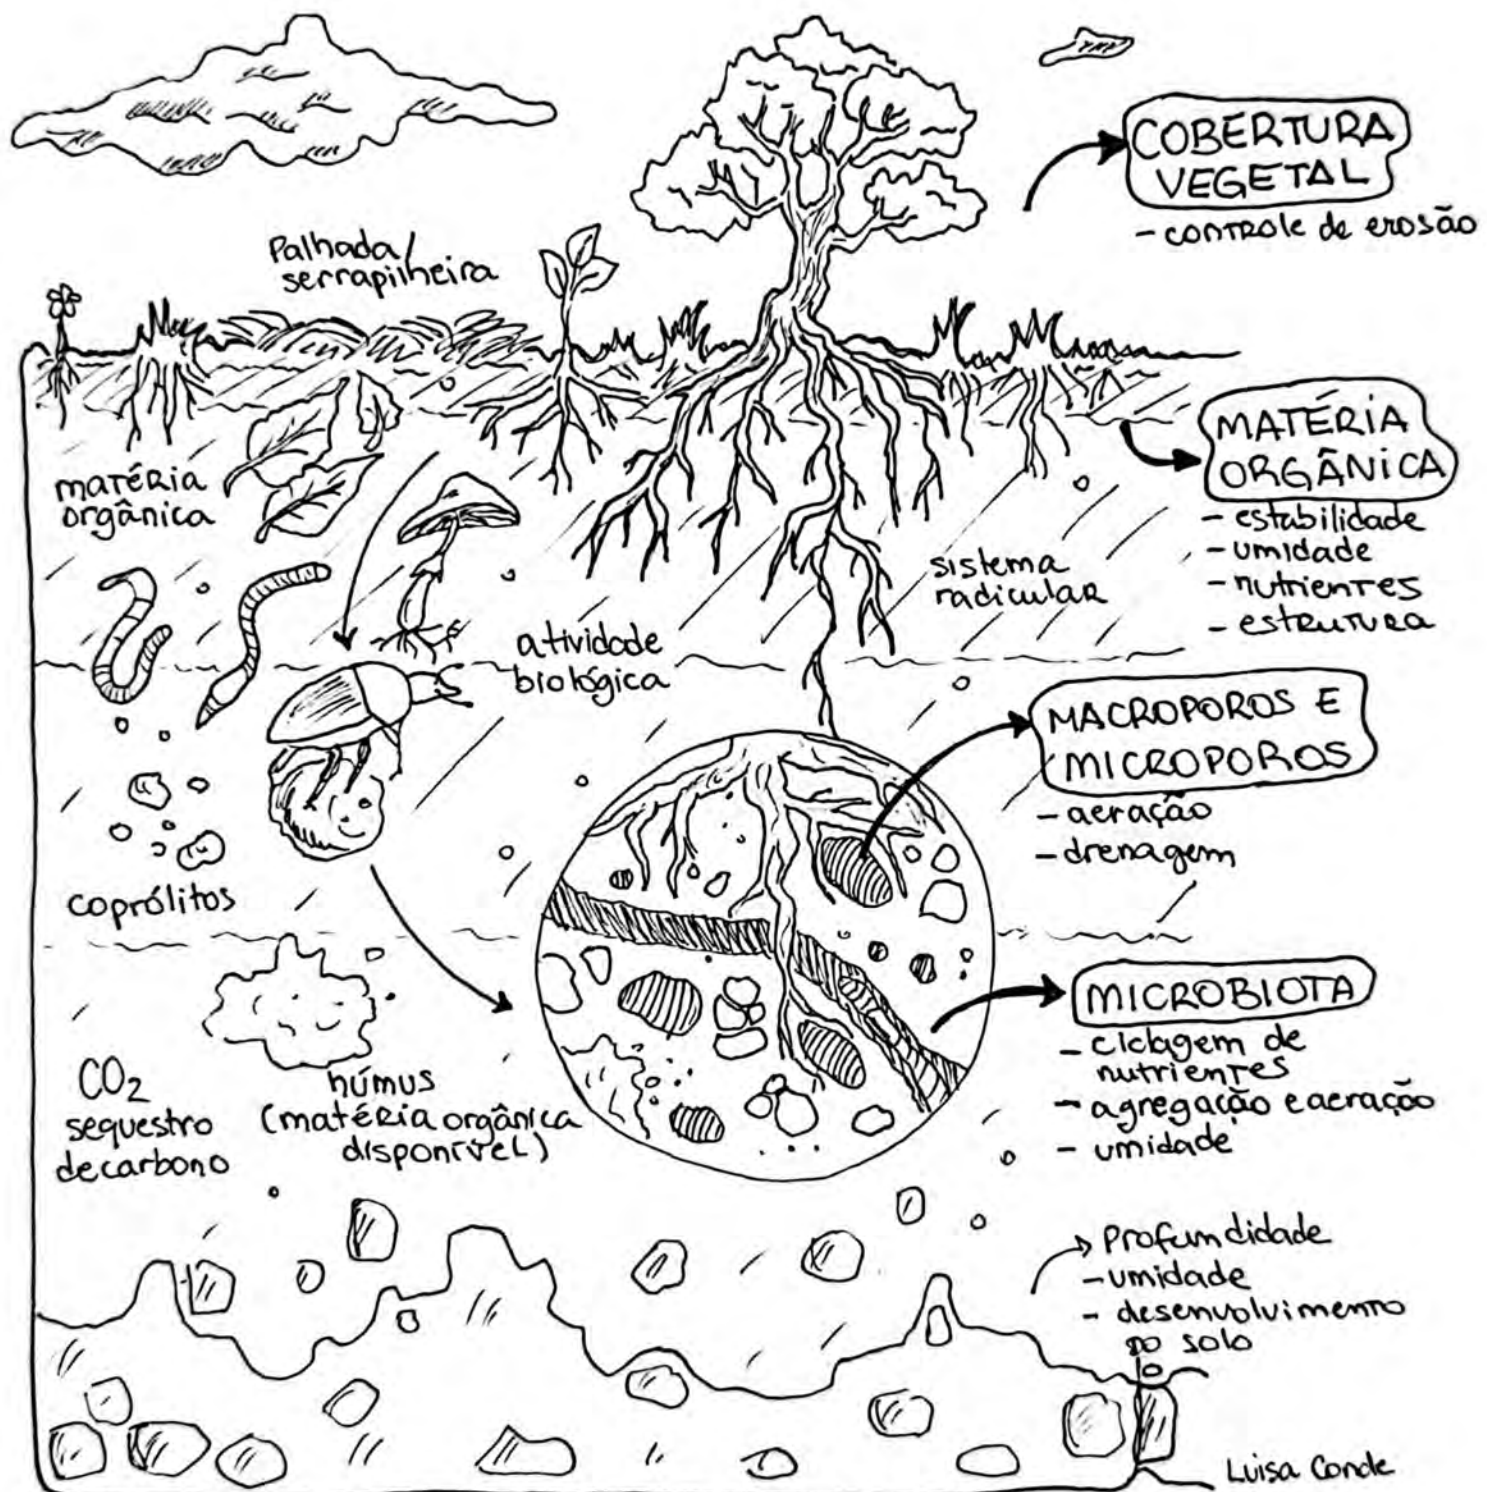 COBERTURA
VEGETAL
- controle de erosão
Palhada/
serrapilheira
matéria
orgânica
MATÉRIA
ORGÂNICA
- estabilidade
- umidade
- nutrientes
- estrutura
sistema
radicular
atividade
biológica
MACROPOROS E
MICROPOROS
- aeração
- drenagem
coprólitos
MICROBIOTA
- ciclagem de
nutrientes
- agregação e aeração
- umidade
CO2
sequestro
de carbono
húmus
(matéria orgânica
disponível)
Profundidade
- umidade
- desenvolvimento
do solo
Luisa Conde